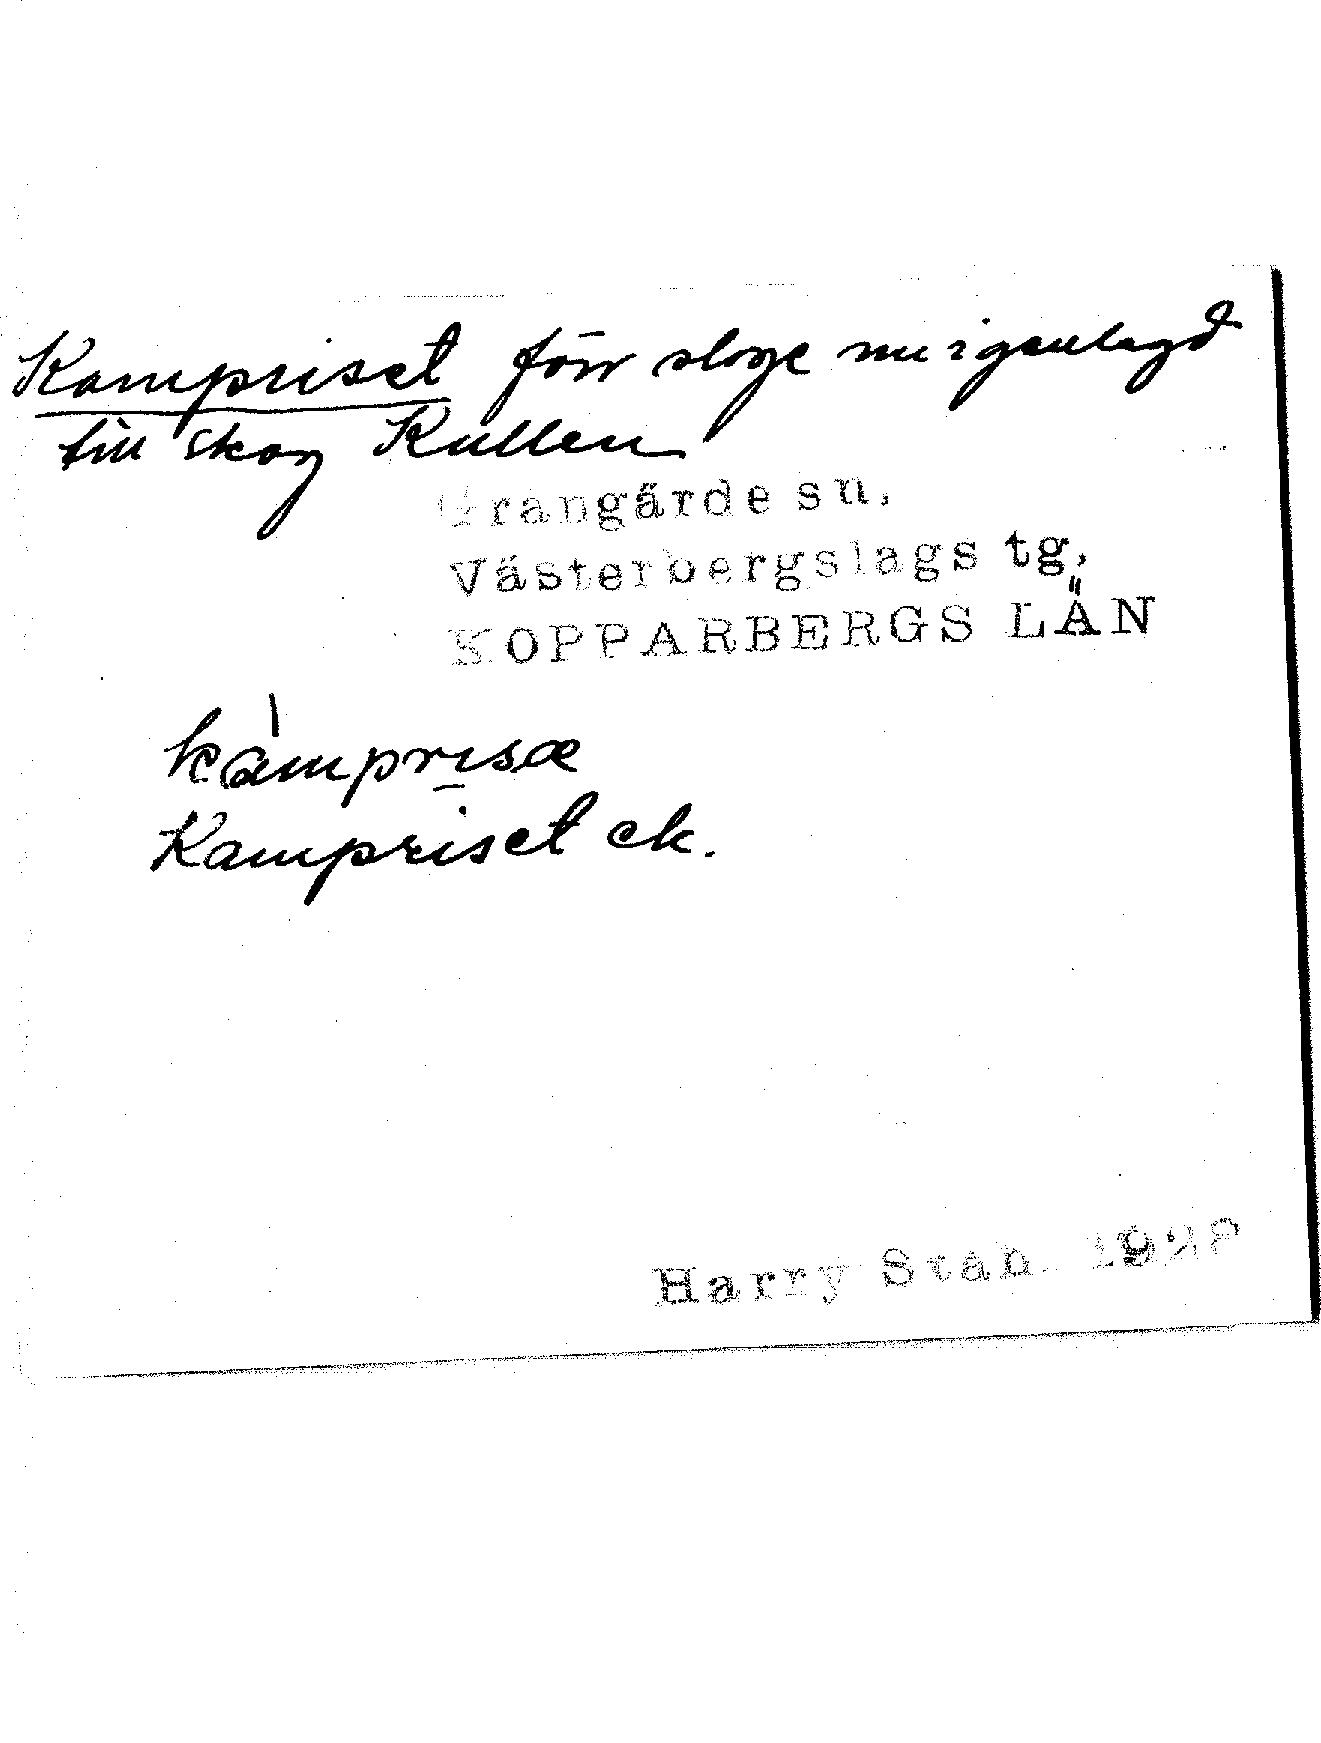 Kampriset förr sloge nu igenlagd
till skog Kullen
Grangärde sn,
Västerbergslags tg,
KOPPARBERGS LÄN
kamprisæ
Kampriset ek.
Harry Ståh 1928